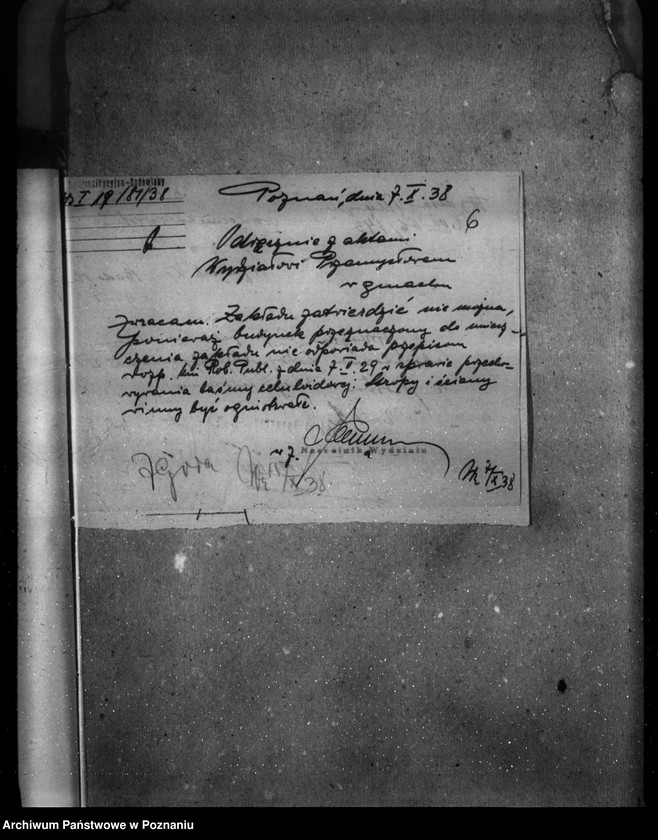 Budowlany
I 19/81/38
Poznań, dnia 7.X.38
6
Odręcznie z aktami
Wydziałowi Przemysłowem
w gmachu
zwracam. Zakładu zatwierdzić nie można,
ponieważ budynek przeznaczony do umiesz-
czenia zakładu nie odpowiada przepisom
rozp. Min. Rob. Publ. z dnia 7.I.29 w sprawie przecho-
wywania taśmy celuloidowej. Stropy i ściany
winny być ogniotrwałe.
w z.
Naczelnik Wydziału
X 38
X 38
Archiwum Państwowe w Poznaniu